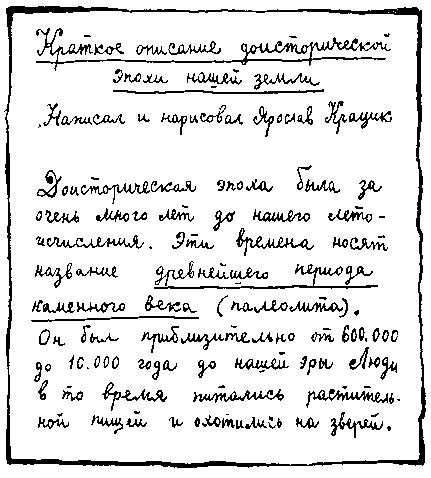 Краткое описание доисторической
эпохи нашей земли
Написал и нарисовал Ярослав Крацик
Доисторическая эпоха была за
очень много лет до нашего лето-
исчисления. Эти времена носят
название древнейшего периода
каменного века (палеолита).
Он был приблизительно от 600.000
до 10.000 года до нашей эры Люди
в то время питались раститель-
ной пищей и охотились на зверей.